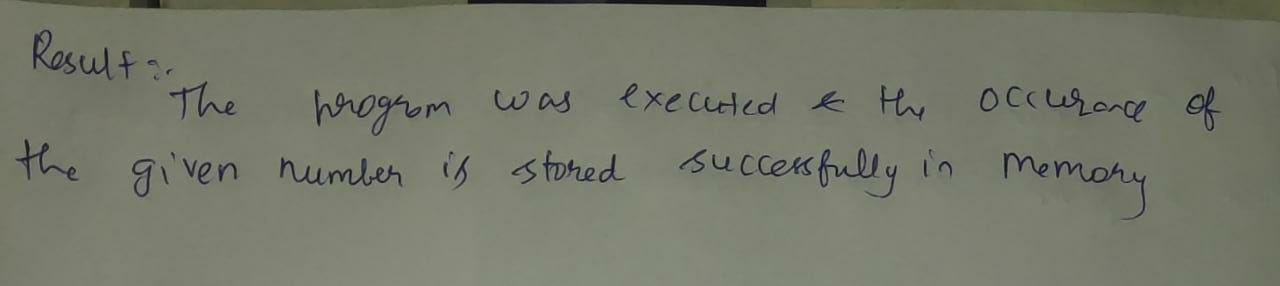 Result :-
The program was executed & the occurance of
the given number is stored successfully in memory